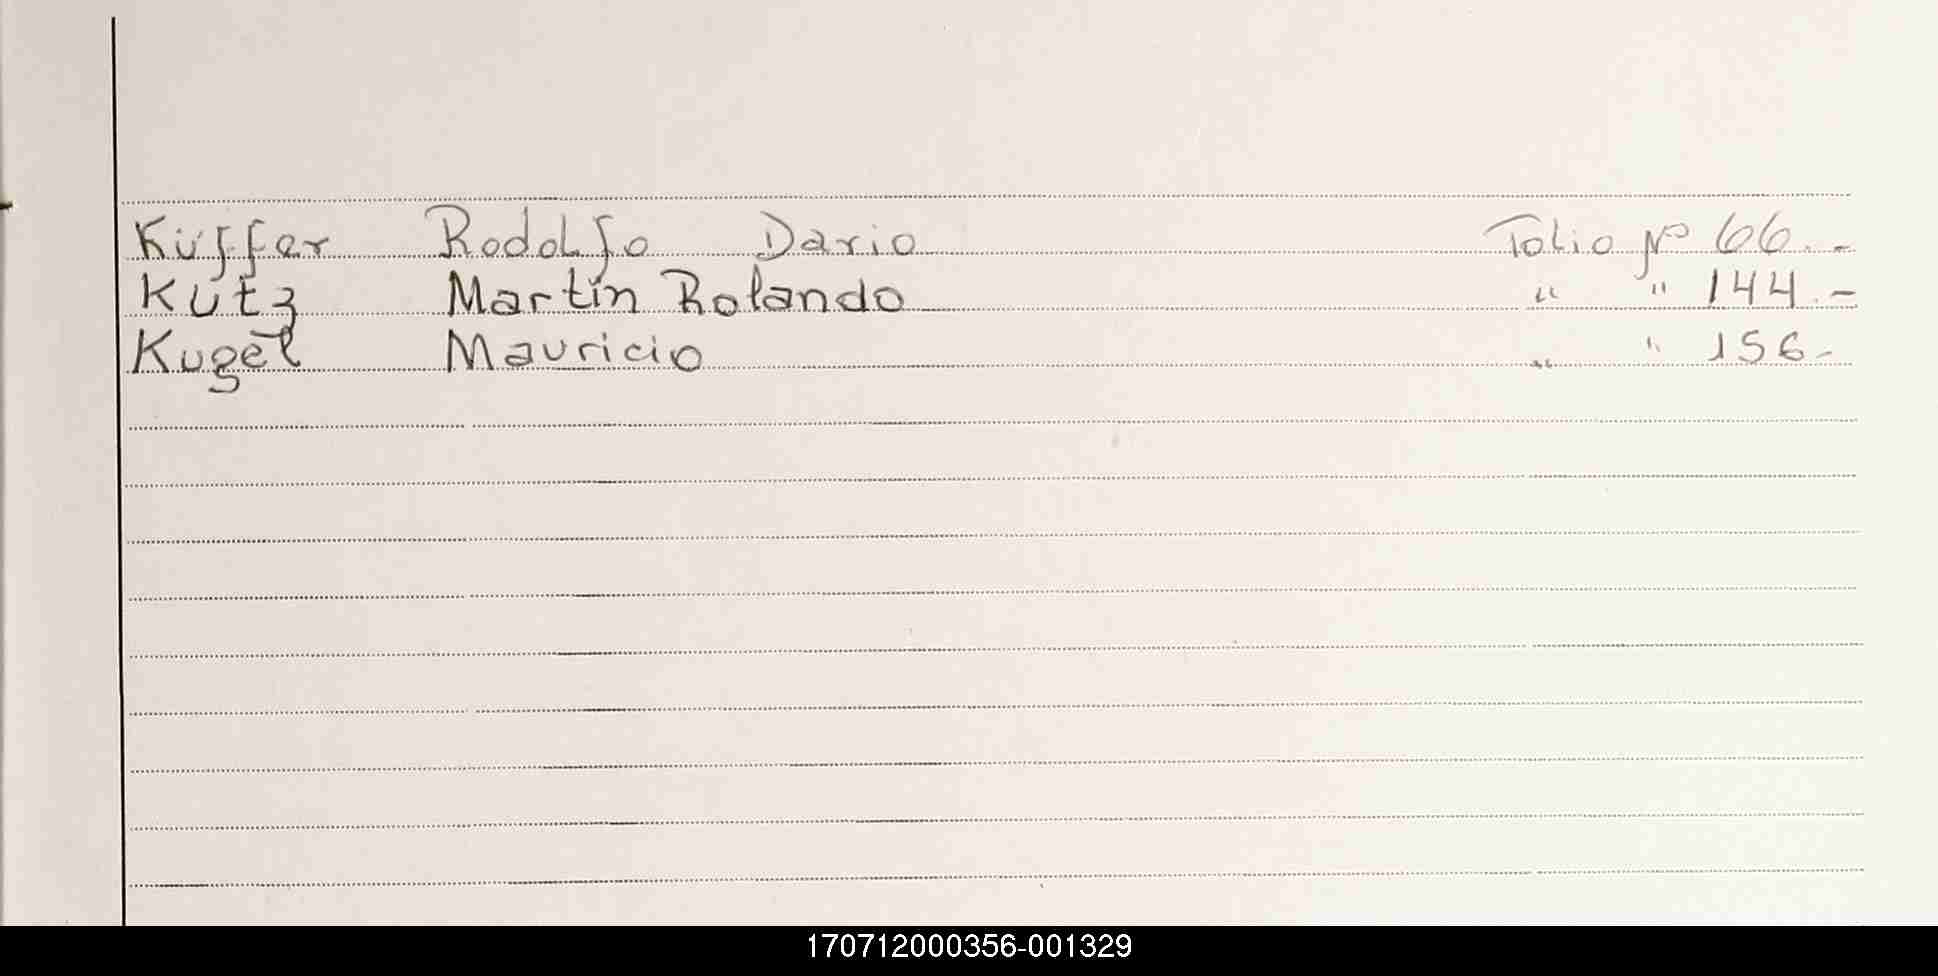 Küffer Rodolfo Dario Folio Nº 66.-
Kutz Martín Rolando " " 144.-
Kugel Mauricio " " 156-
170712000356-001329